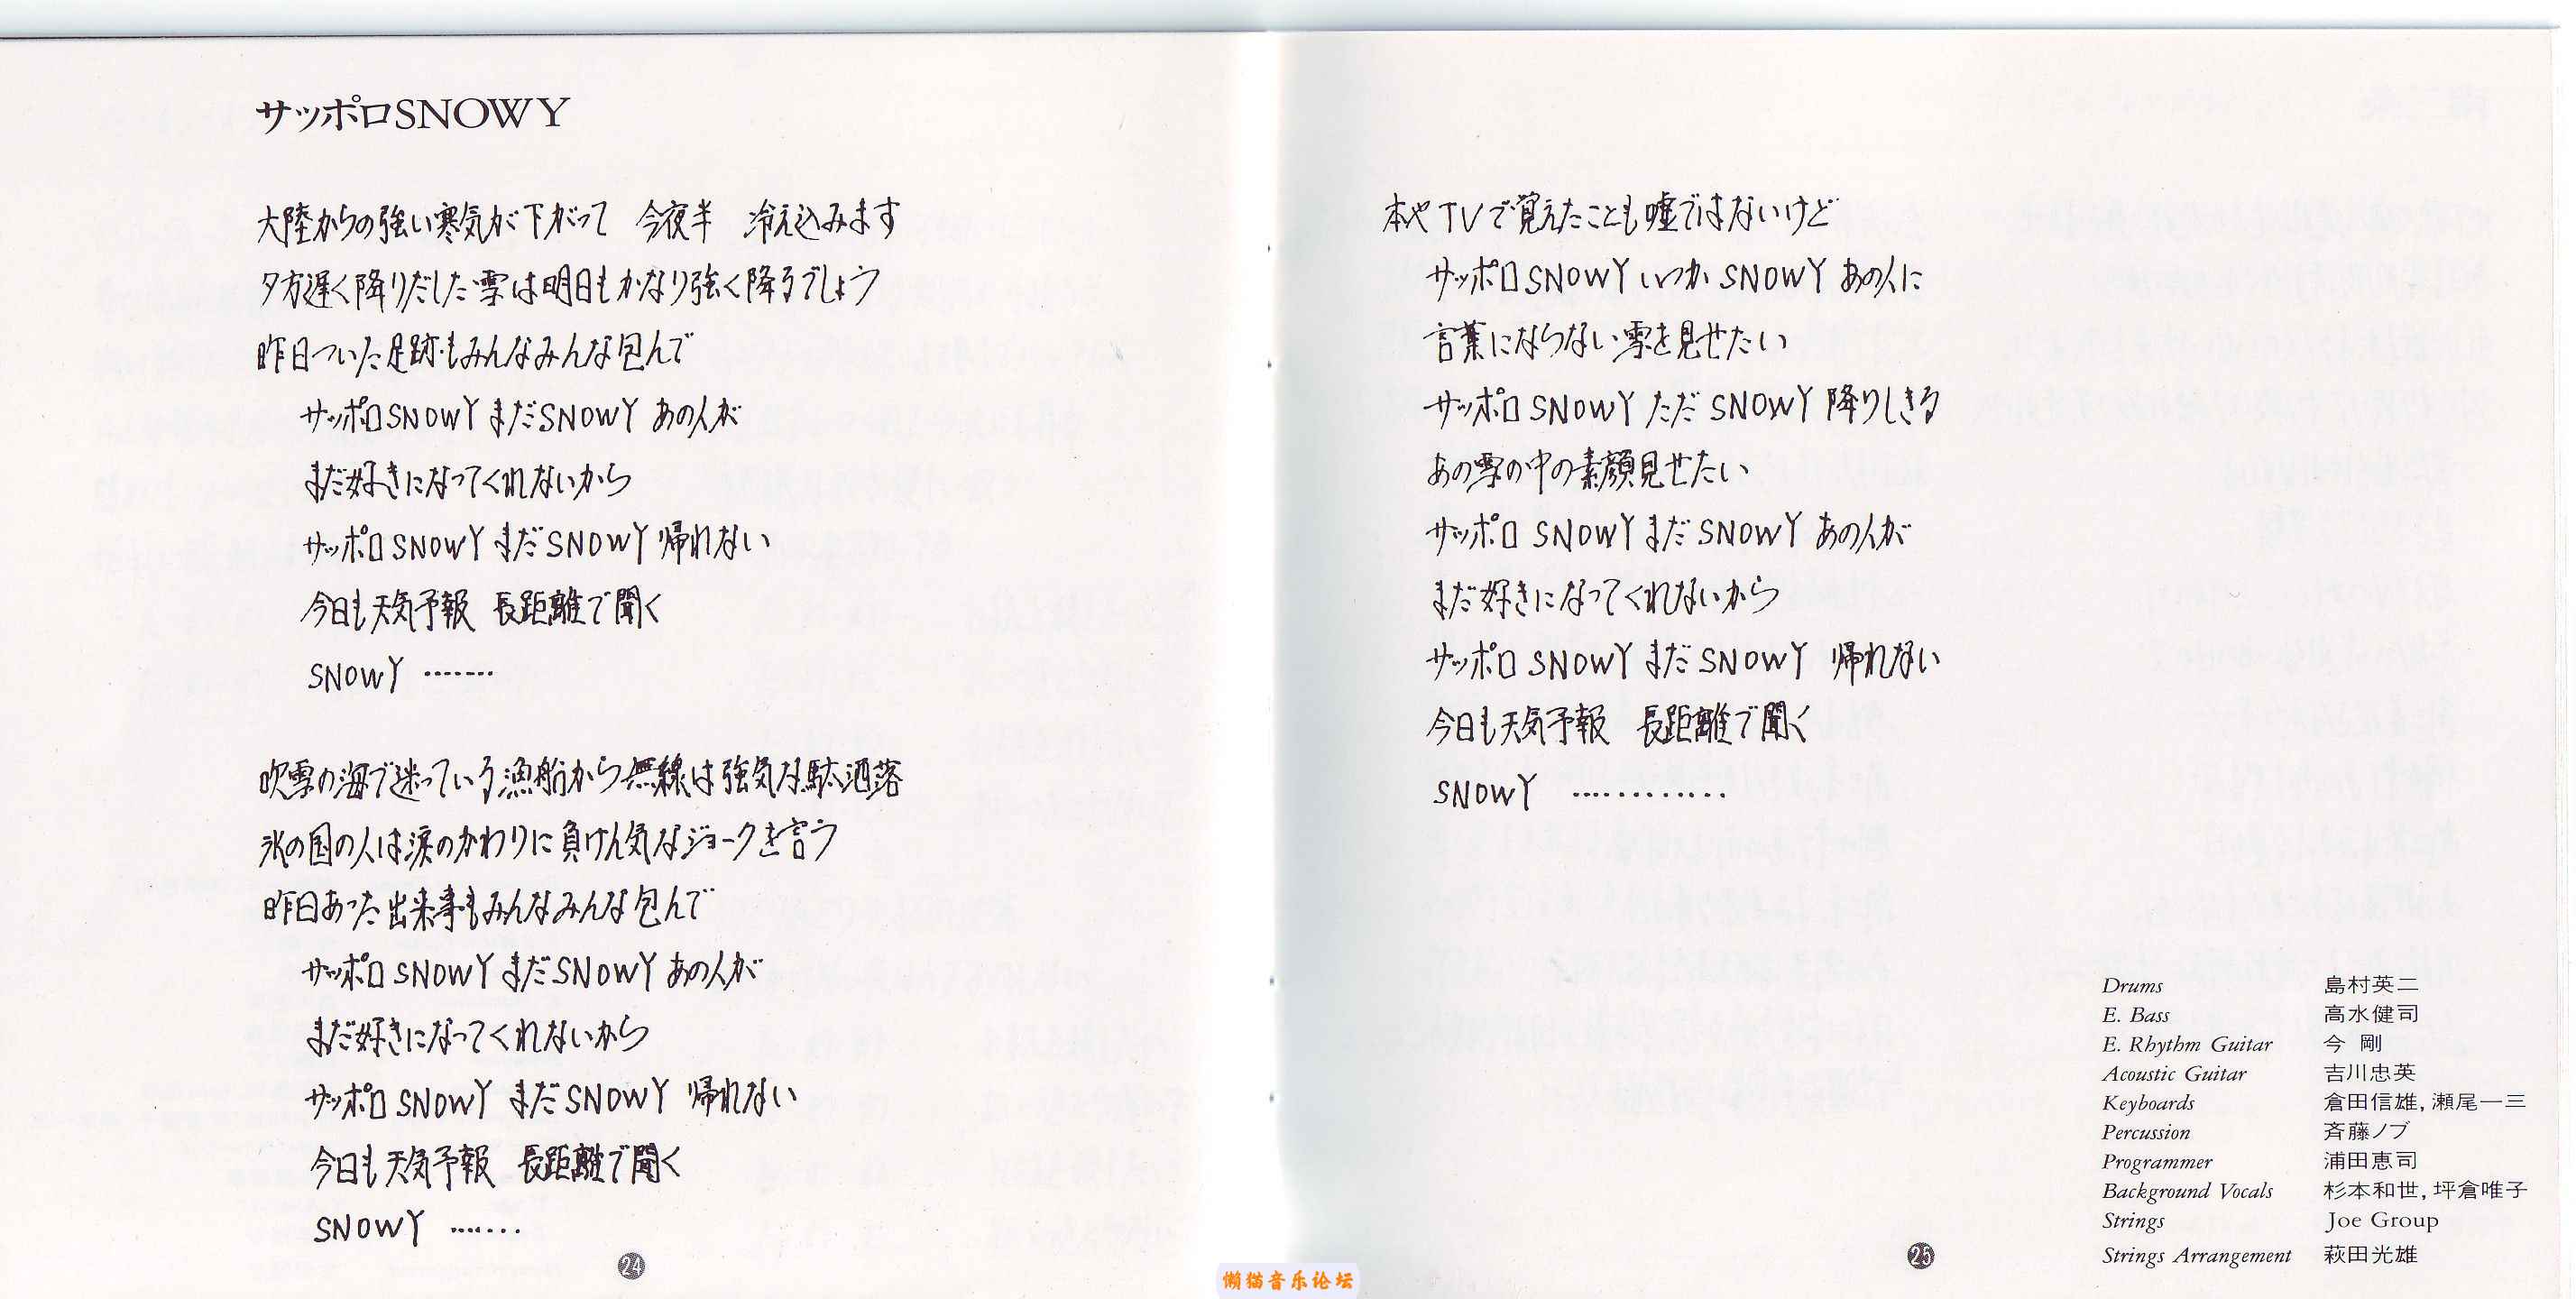 サッポロSNOWY
大陸からの強い寒気が下がって　今夜半　冷え込みます
夕方遅く降りだした雪は明日もかなり強く降るでしょう
昨日ついた足跡もみんなみんな包んで
サッポロSNOWYまだSNOWY あの人が
まだ好きになってくれないから
サッポロSNOWYまだSNOWY 帰れない
今日も天気予報 長距離で聞く
SNOWY ‥‥‥‥
吹雪の海で迷っている漁船から無線は強気な駄洒落
氷の国の人は涙のかわりに負けん気なジョークを言う
昨日あった出来事もみんなみんな包んで
サッポロSNOWYまだSNOWY あの人が
まだ好きになってくれないから
サッポロSNOWY まだSNOWY 帰れない
今日も天気予報　長距離で聞く
SNOWY ‥‥‥‥
24
本やTVで覚えたことも嘘ではないけど
サッポロSNOWY いつか SNOWY あの人に
言葉にならない雪を見せたい
サッポロ SNOWY ただ SNOWY 降りしきる
あの雪の中の素顔見せたい
サッポロ SNOWYまだ SNOWY あの人が
まだ好きになってくれないから
サッポロ SNOWYまだ SNOWY 帰れない
今日も天気予報　長距離で聞く
SNOWY ‥‥‥‥‥‥
Drums 島村英二
E. Bass 高水健司
E. Rhythm Guitar 今 剛
Acoustic Guitar 吉川忠英
Keyboards 倉田信雄, 瀬尾一三
Percussion 斉藤ノブ
Programmer 浦田恵司
Background Vocals 杉本和世, 坪倉唯子
Strings Joe Group
Strings Arrangement 萩田光雄
25
懒猫音乐论坛